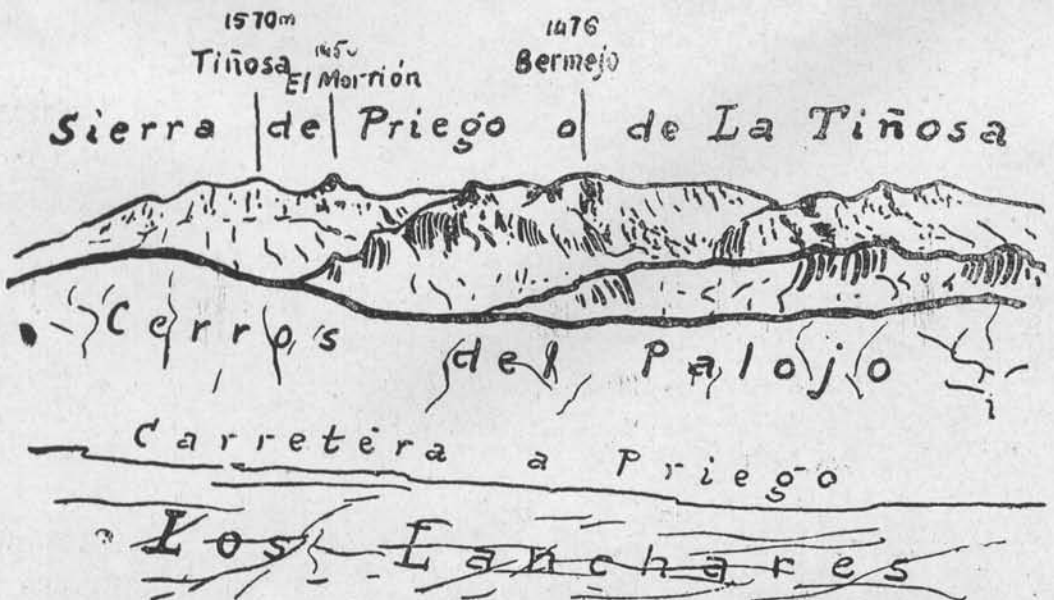 1570m
Tiñosa
1450
El Morrión
1476
Bermejo
Sierra de Priego o de La Tiñosa
Cerros del Palojo
Carretera a Priego
Los Lanchares